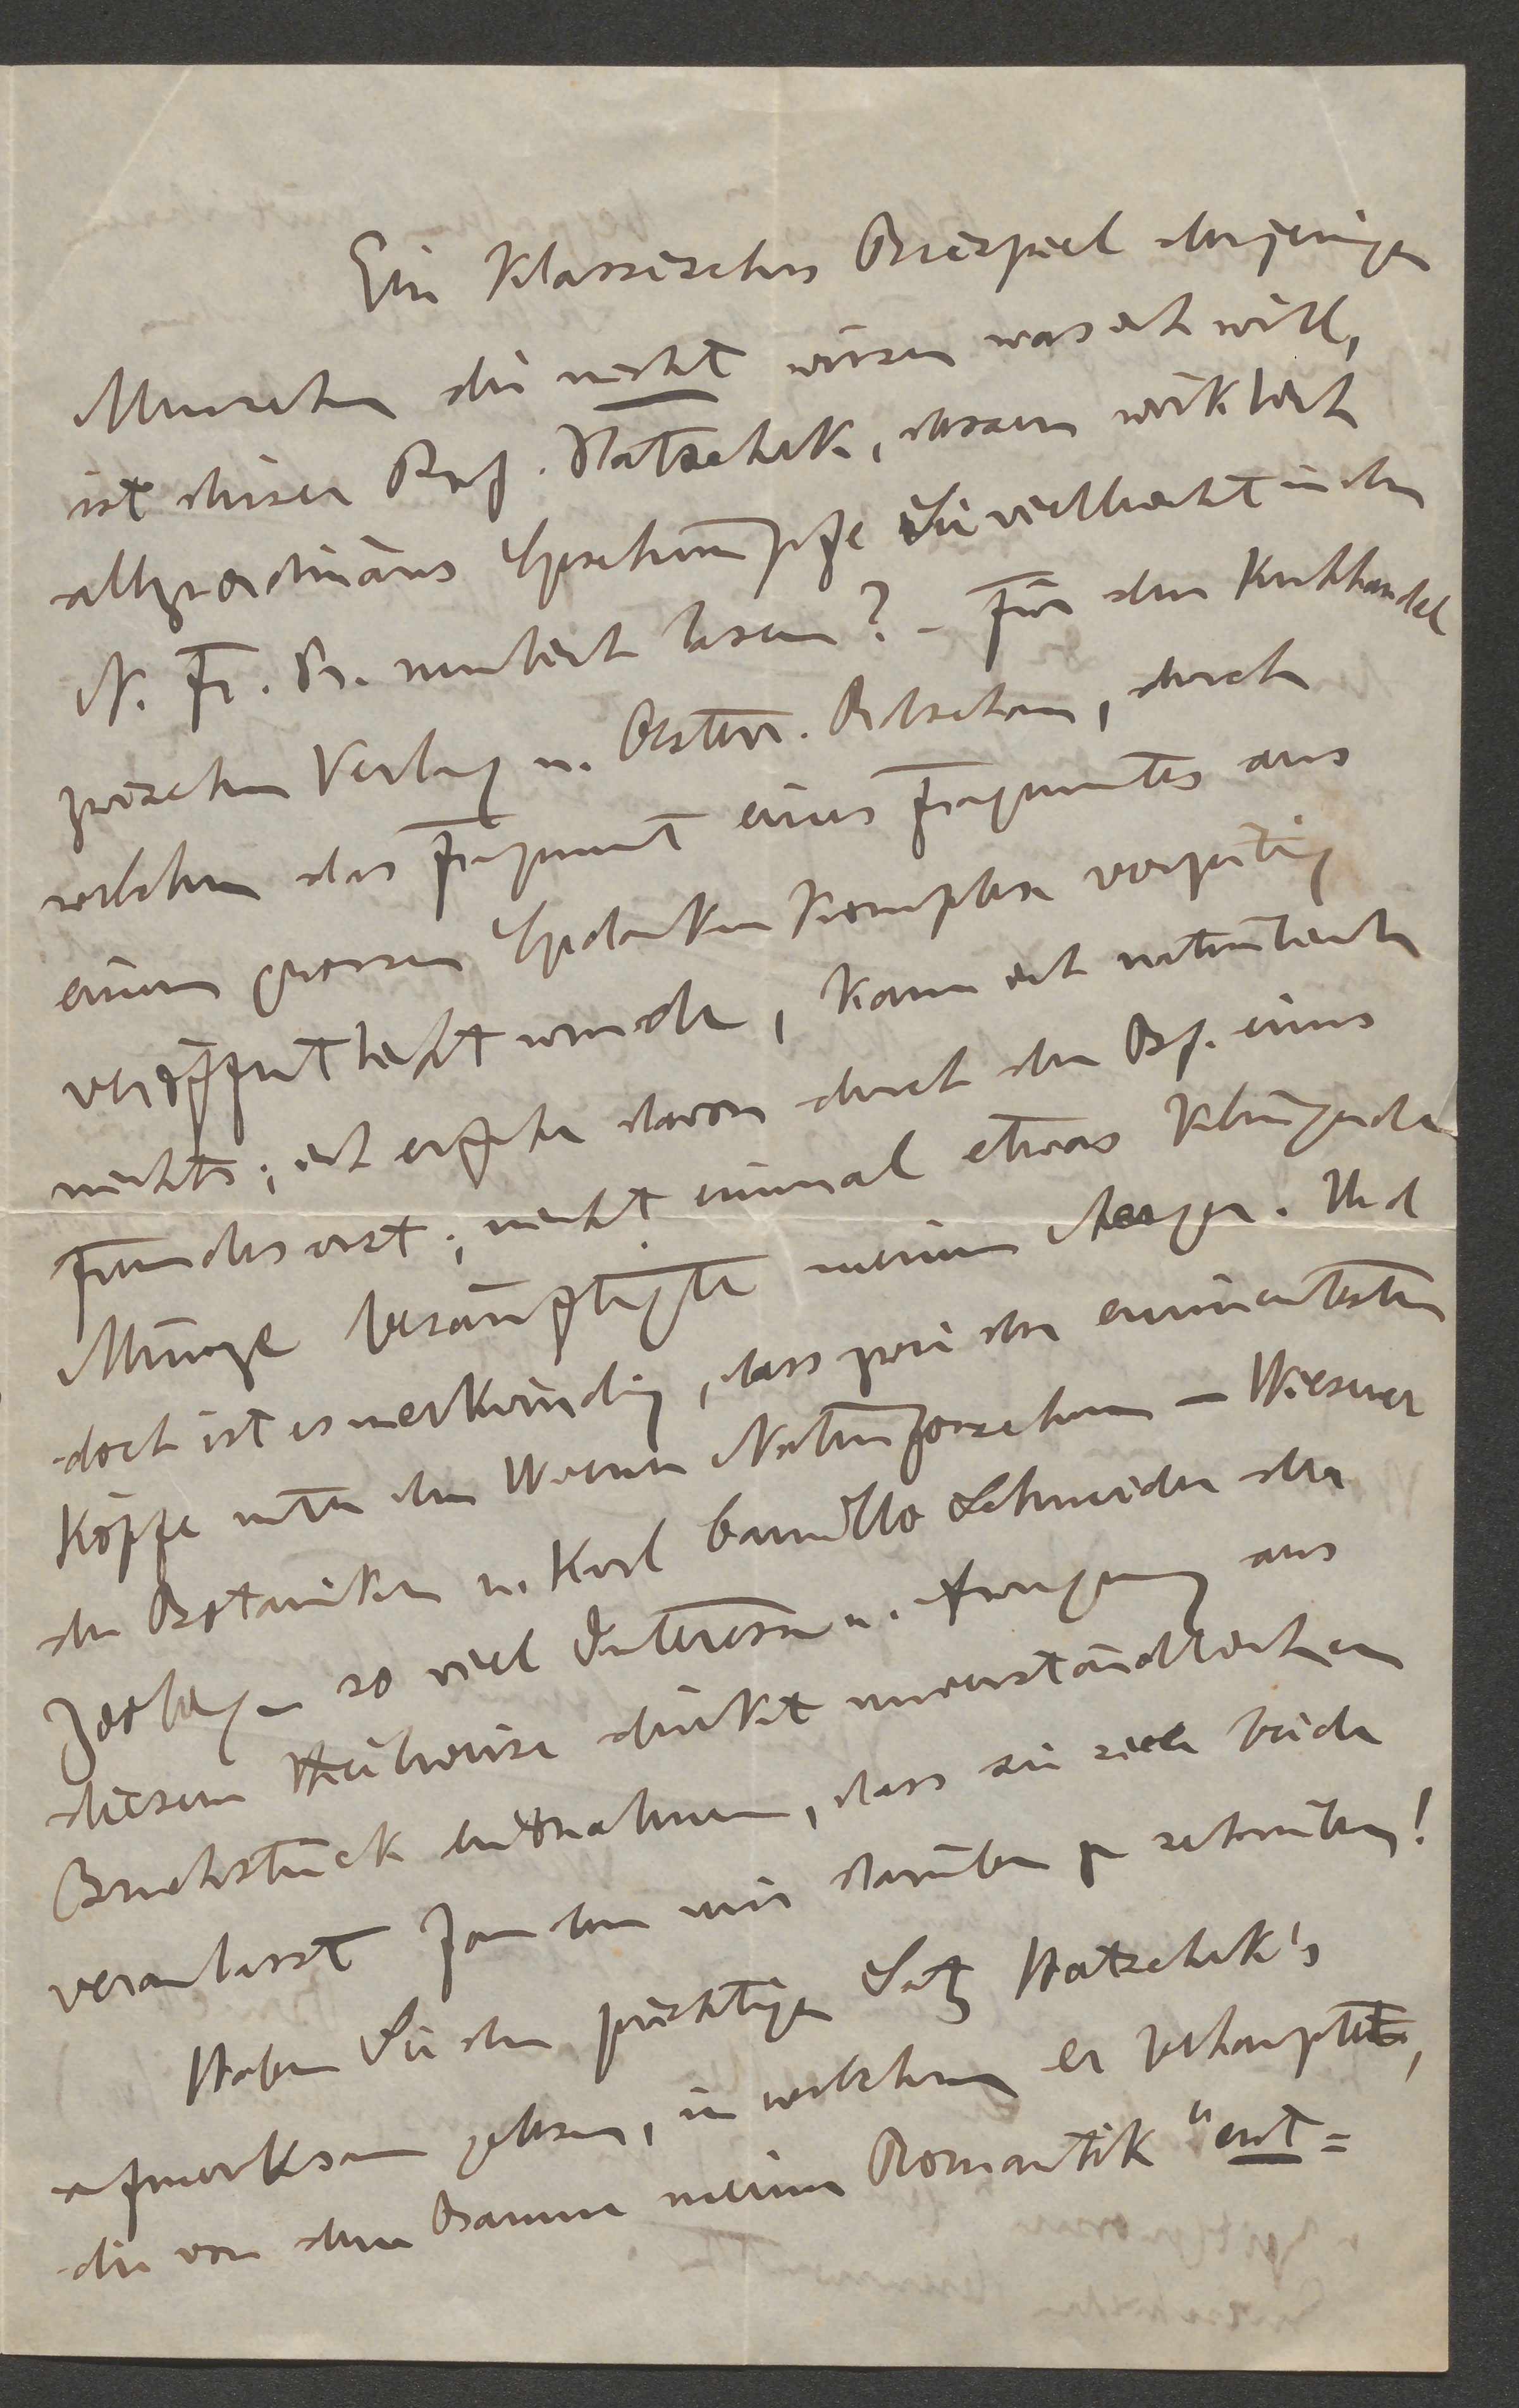 Ein klassisches Beispiel derjenigen
Menschen die nicht wissen was ich will,
ist dieser Prof. Hatschek, dessen wirklich
allzuordinäres Geschimpfe Sie vielleicht in der
N. Fr. Pr. neulich lasen? – Für den Kuhhandel
zwischen Verlag u. Österr. Rdschau, durch
welchen das Fragment eines Fragmentes aus
einem grossen Gedankenkomplex vorzeitig
veröffentlicht wurde, kann ich natürlich
nichts; ich erfuhr davon durch den Bf. eines
Freundes erst; nicht einmal etwas klingende
Münze besänftigte meinen Aerger. Und
doch ist es merkwürdig, dass zwei der eminentesten
Köpfe unter den Wiener Naturforschern – Wiesner
der Botaniker u. Karl Camillo Schneider der
Zoologe – so viel Interesse u. Anregung aus
diesem teilweise direkt unverständlichen
Bruchstück entnahmen, dass sie sich beide
veranlasst fanden mir darüber zu schreiben!
Haben Sie den prächtigen Satz Hatschek's
aufmerksam gelesen, in welchem er behauptet,
die von dem Banne meiner Romantik "ent=